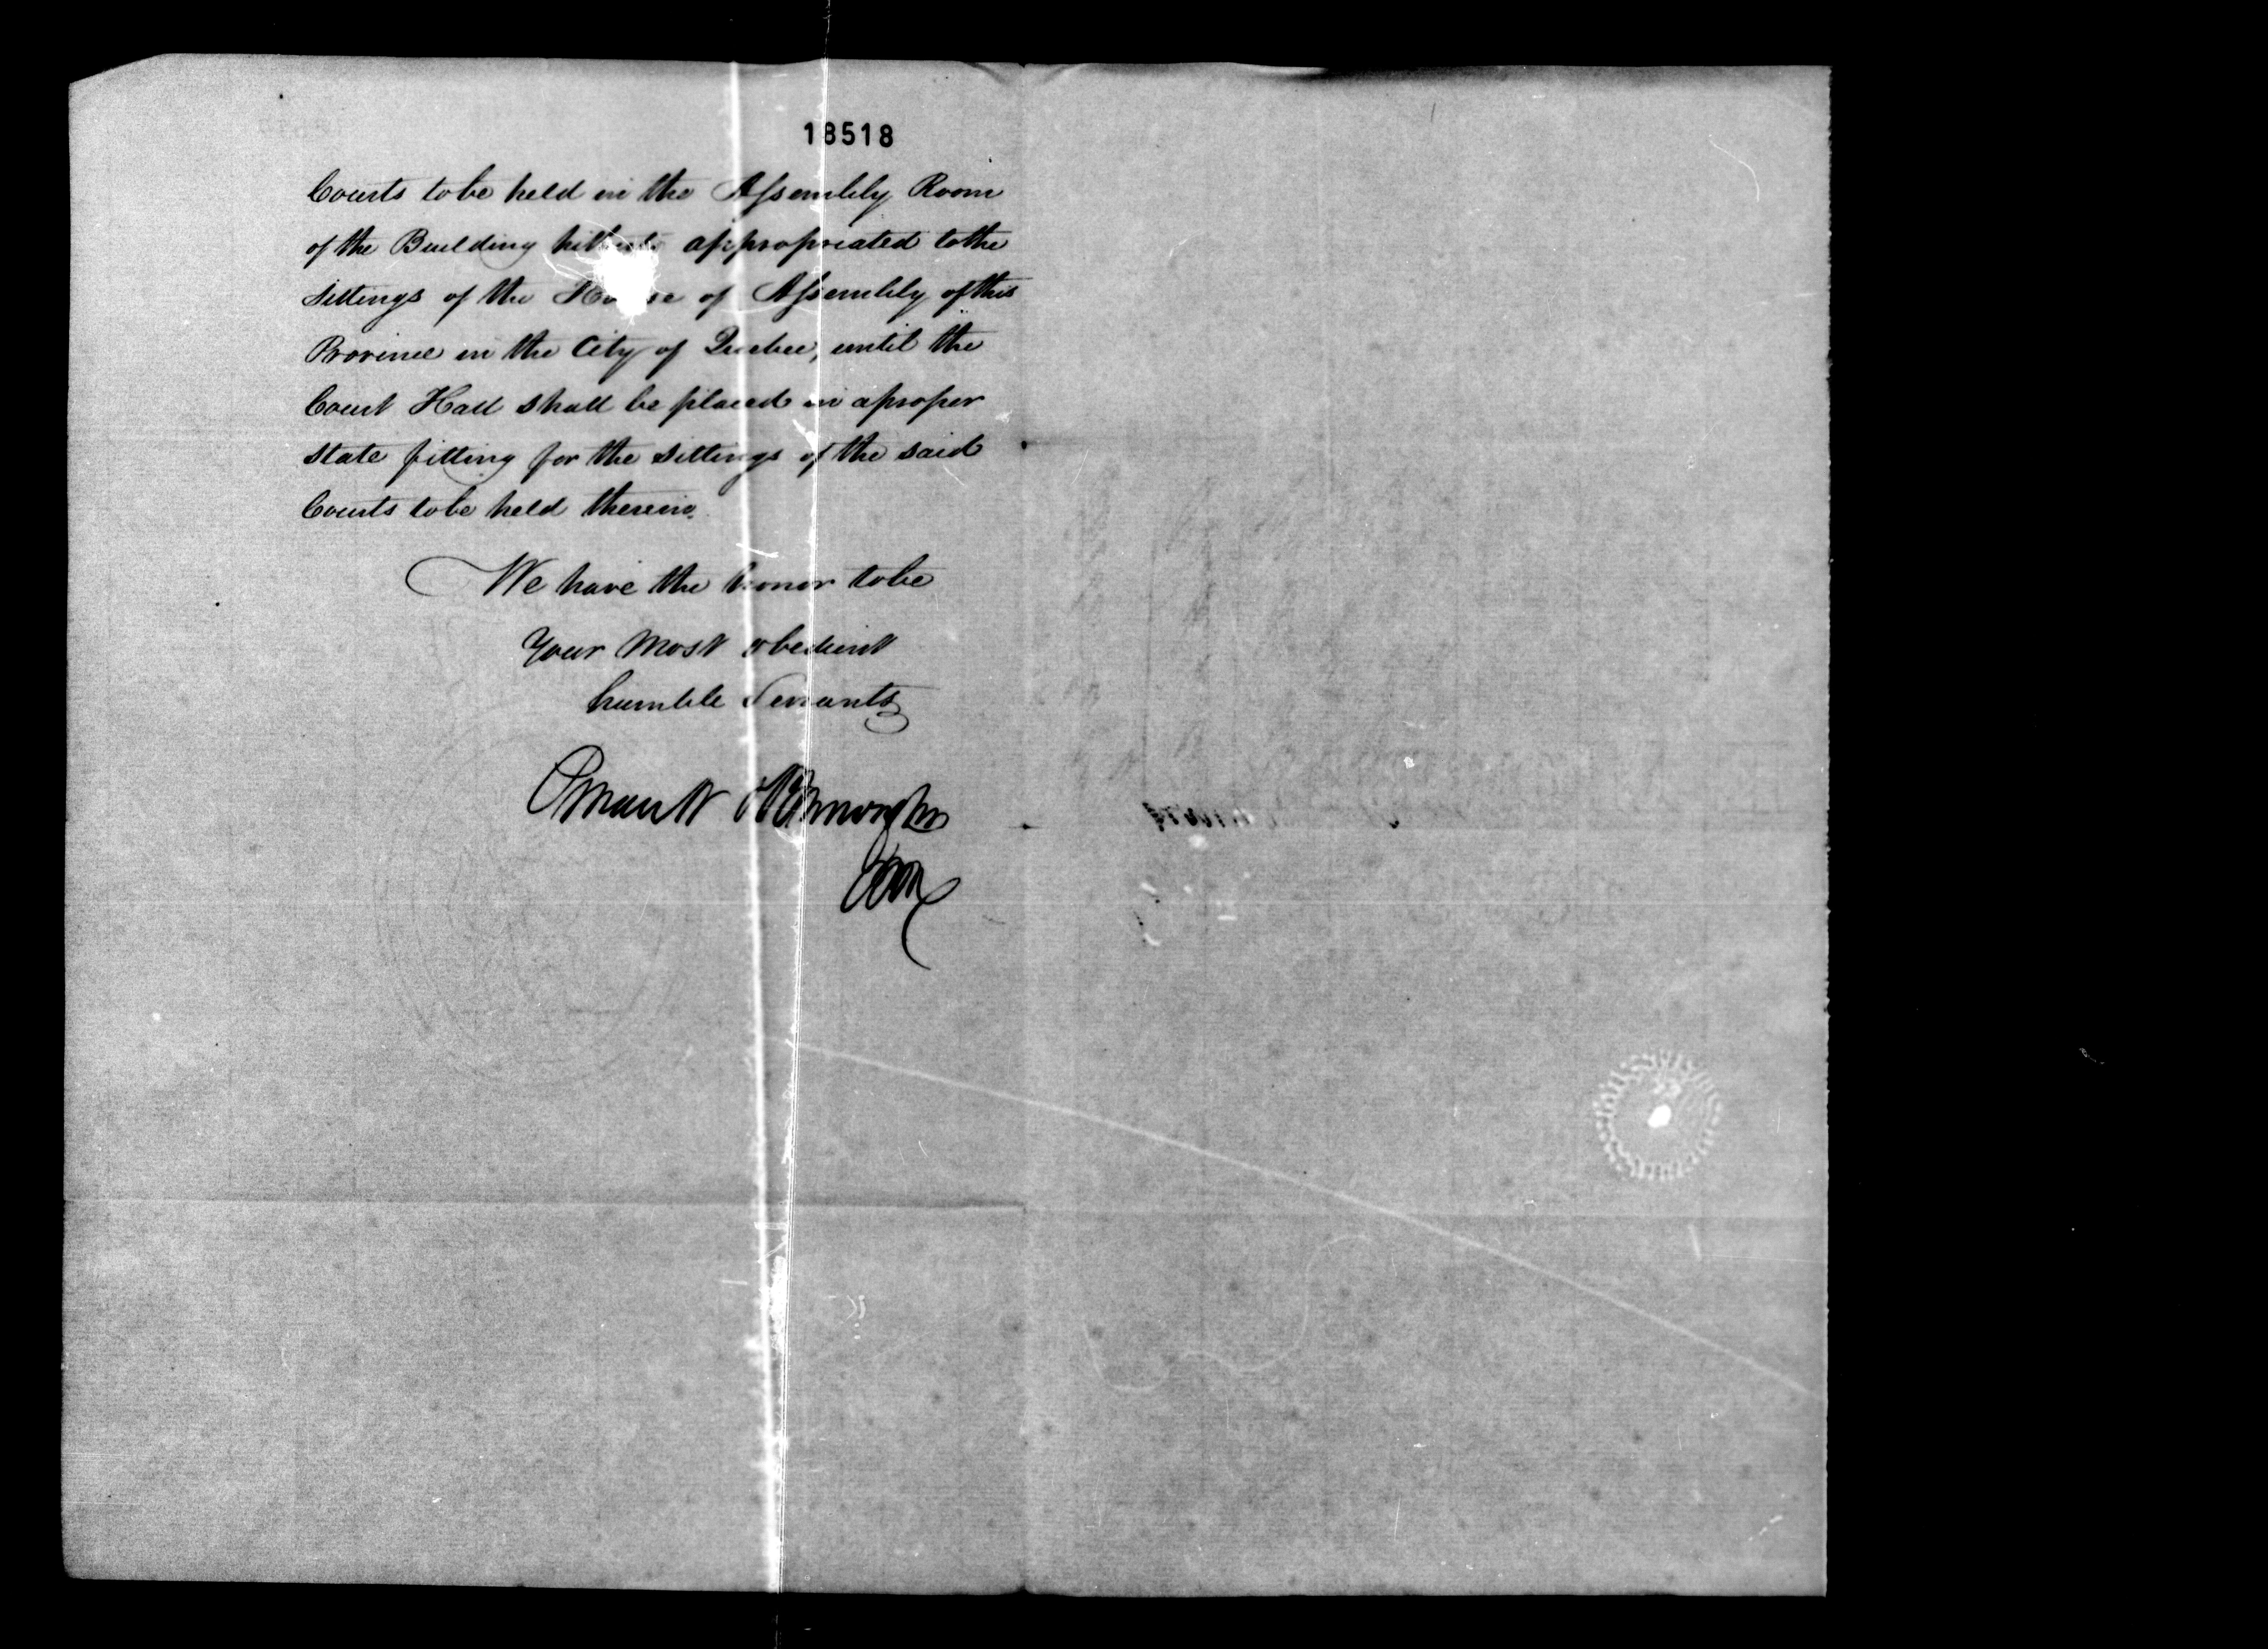 18518
Courts to be held in the Assembly Room
of the Building hitherto appropriated to the
Sittings of the House of Assembly of this
Province in the City of Quebec, until the
Court Hall shall be placed in a proper
state fitting for the sittings of the said
Courts to be held therein.
We have the honor to be
Your Most obedient
humble Servants